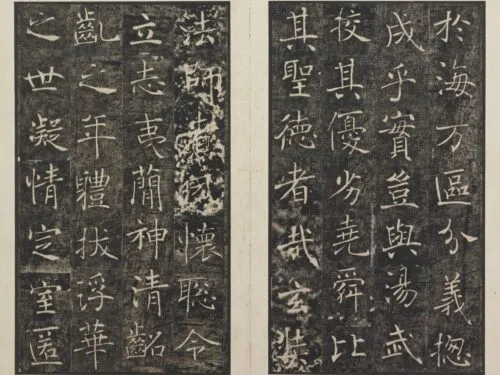 於海万區分義揔
成乎實豈與湯武
校其優劣堯舜比
其聖德者哉玄奘
法師者夙懷聡令
立志夷蕳神清齠
齔之年體拔浮華
之世凝情定室匿